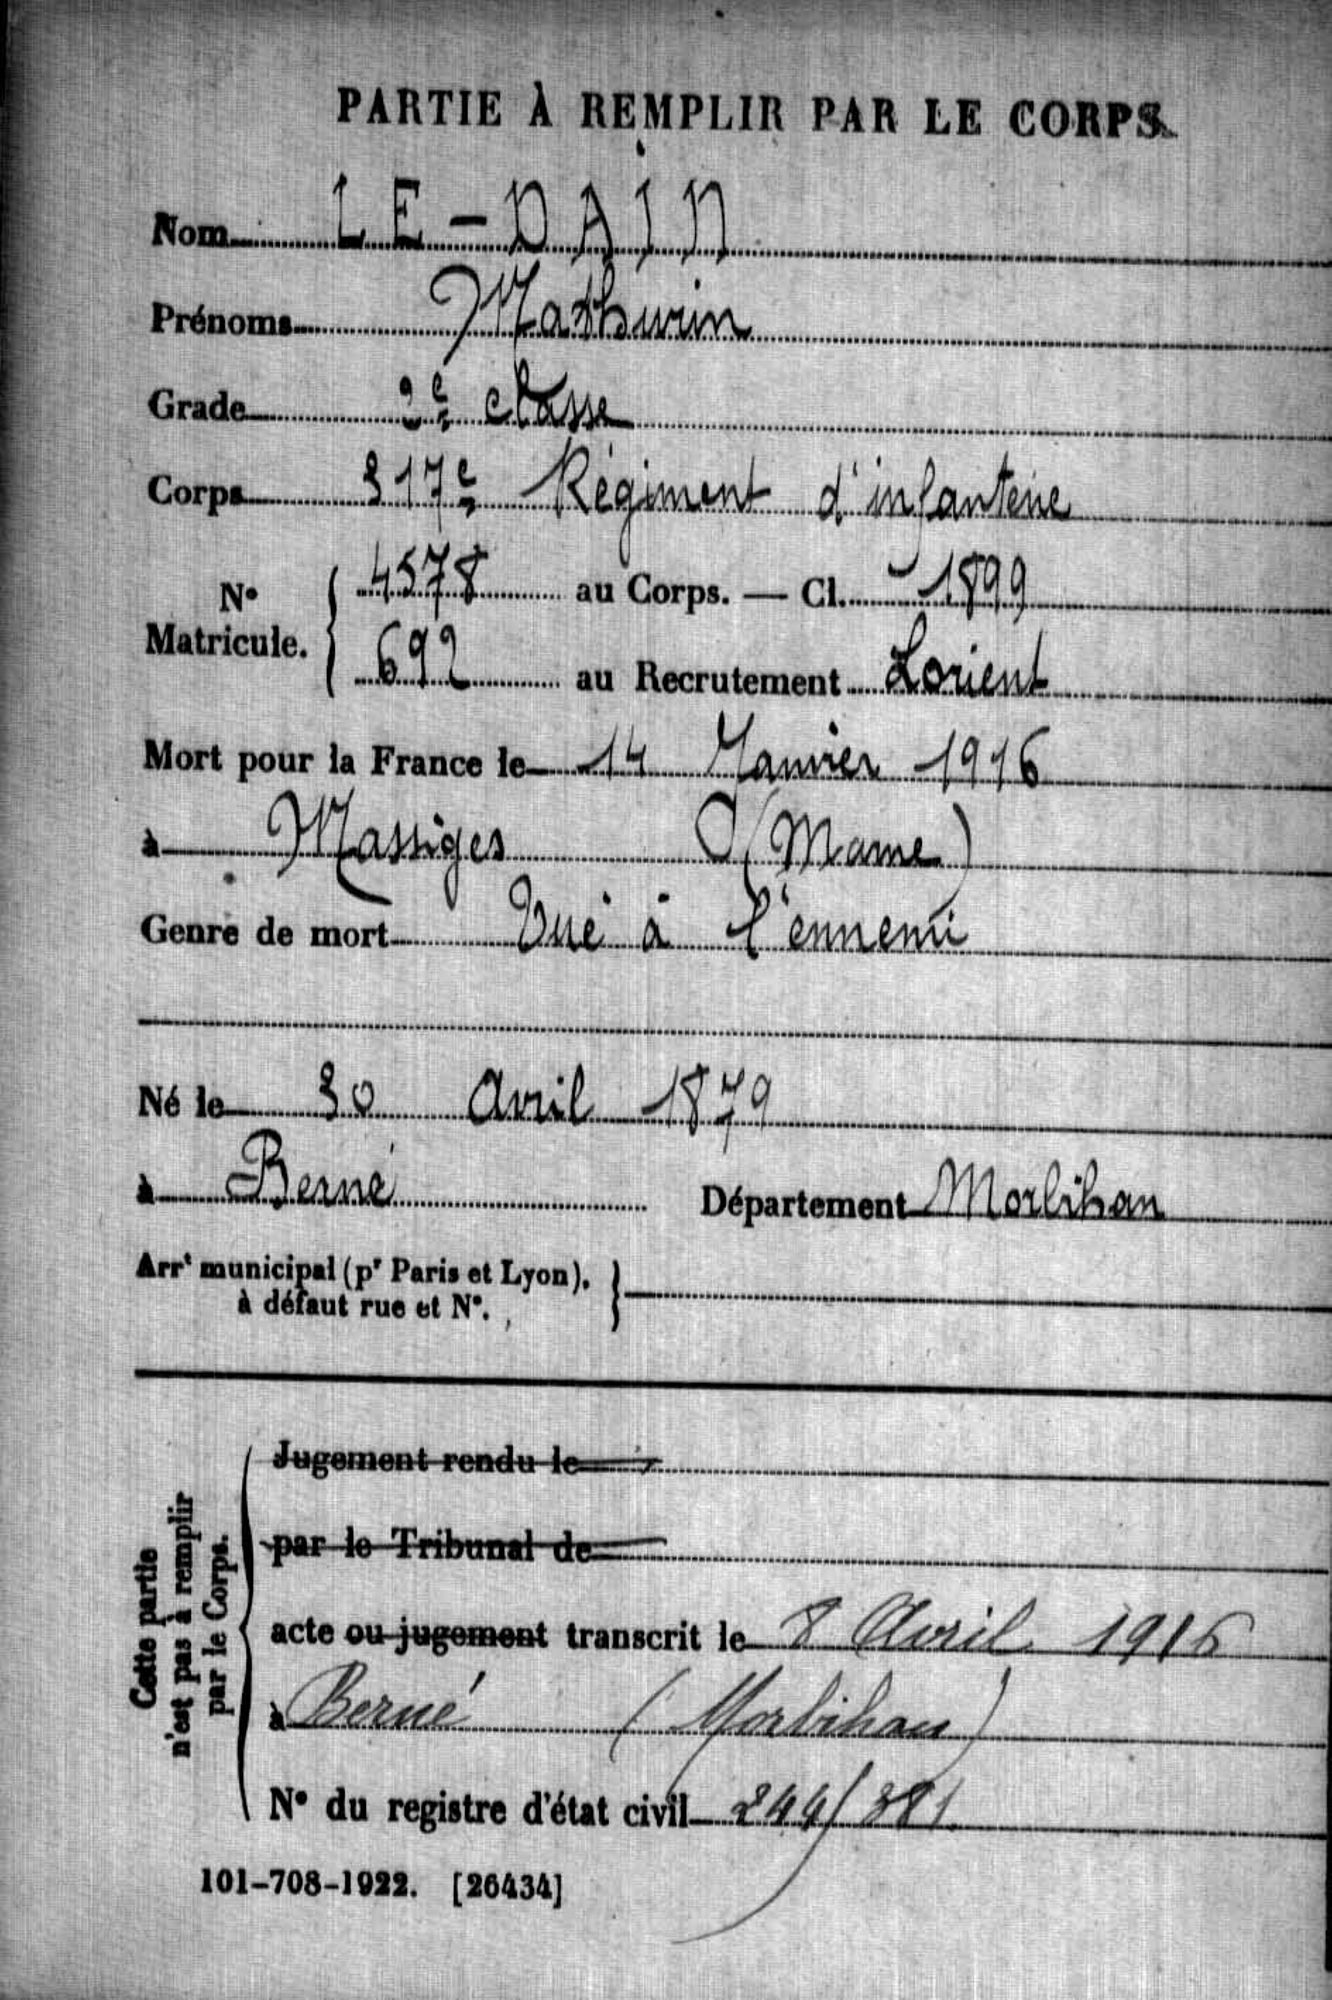 PARTIE À REMPLIR PAR LE CORPS.
Nom LE-DAIN
Prénoms Mathurin
Grade 2e classe
Corps 317e Régiment d'infanterie
No Matricule. 4578 au Corps. — Cl. 1899
692 au Recrutement Lorient
Mort pour la France le 14 Janvier 1916
à Massiges (Marne)
Genre de mort Tué à l'ennemi
Né le 30 Avril 1879
à Berné Département Morbihan
Arrt municipal (pr Paris et Lyon),
à défaut rue et No.
Cette partie
n'est pas à remplir
par le Corps.
Jugement rendu le
par le Tribunal de
acte ou jugement transcrit le 8 Avril 1916
à Berné (Morbihan)
No du registre d'état civil 244/381
101-708-1922. [26434]